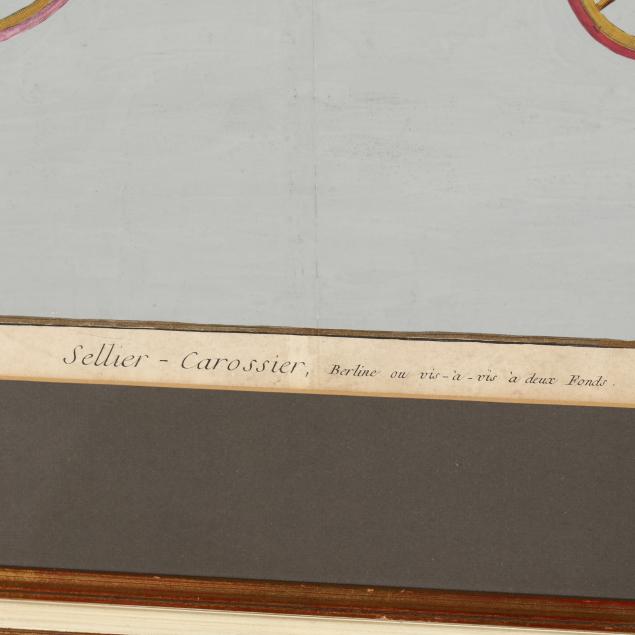 Sellier - Carossier, Berline ou vis-à-vis à deux Fonds.